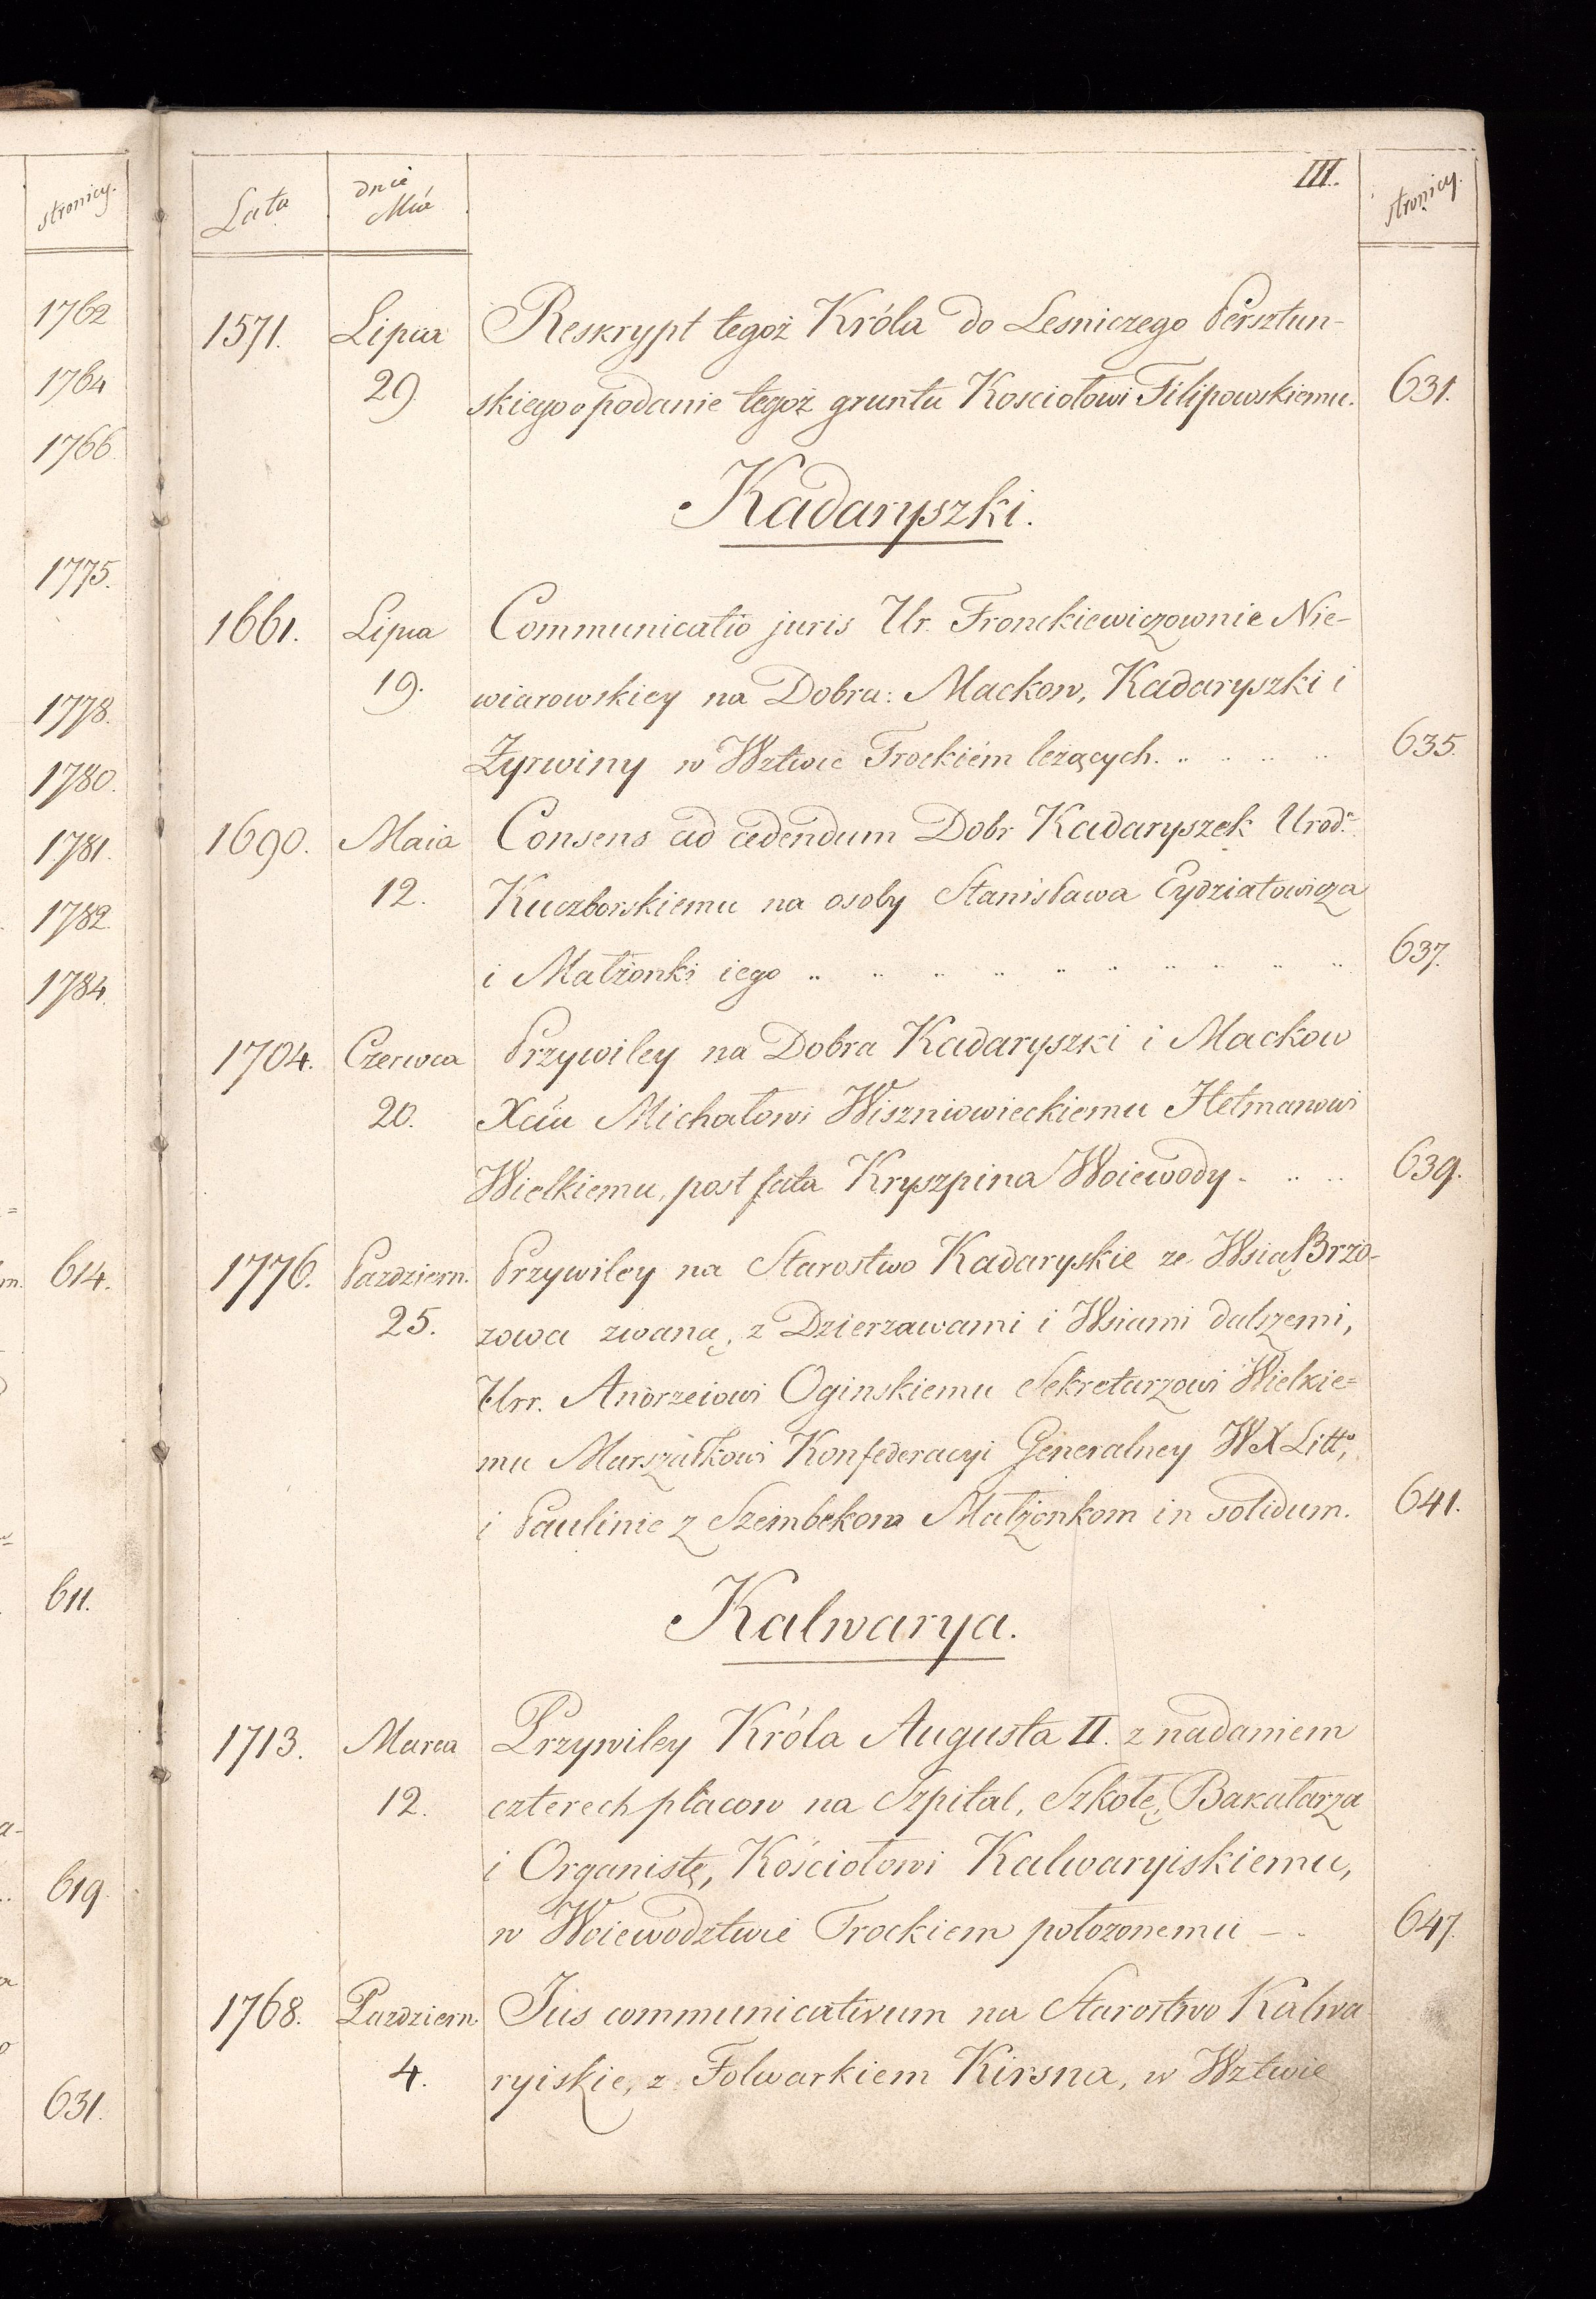 stronicy.
1762
1764
1766.
1775.
1778.
1780.
1781.
1782.
1784.
614.
611.
619.
631.
III.
Lata
dnie
Mca
stronicy.
1571. Lipca Reskrypt tegoż Króla do Lesniczego Persztun-
29 skiego o podanie tegoż gruntu Kosciołowi Filipowskiemu. 631.
Kadaryszki.
1661. Lipca Communicatio juris Ur. Fronckiewiczownie Nie-
19. wiarowskiey na Dobra: Mackow, Kadaryszki i
Żyrwiny w Wztwie Trockiém leżących. 635.
1690. Maia Consens ad cedendum Dobr Kadaryszek Urod.
12. Kuczborskiemu na osoby Stanisława Eydziatowicza
i Małżonki iego 637.
1704. Czerwca Przywiley na Dobra Kadaryszki i Mackow
20. Xciu Michałowi Wiszniowieckiemu Hetmanowi
Wielkiemu, post fata Kryszpina Woiewody 639.
1776. Pazdziern. Przywiley na Starostwo Kadaryskie ze Wsią Brzo-
25. zowa zwaną, z Dzierzawami i Wsiami dalszemi,
Urr. Andrzeiowi Oginskiemu Sekretarzowi Wielkie=
mu Marszałkowi Konfederacyi Generalney WX Litt,
i Paulinie z Szembekow Małżonkom in solidum. 641.
Kalwarya.
1713. Marca Przywiley Króla Augusta II. z nadaniem
12. czterech placow na Szpital, Szkołę, Bakałarza
i Organistę, Kościołowi Kalwaryiskiemu,
w Woiewodztwie Trockiem położonemu – 647.
1768. Pazdziern. Jus communicativum na Starostwo Kalwa
4. ryiskie, z Folwarkiem Kirsna, w Wztwie